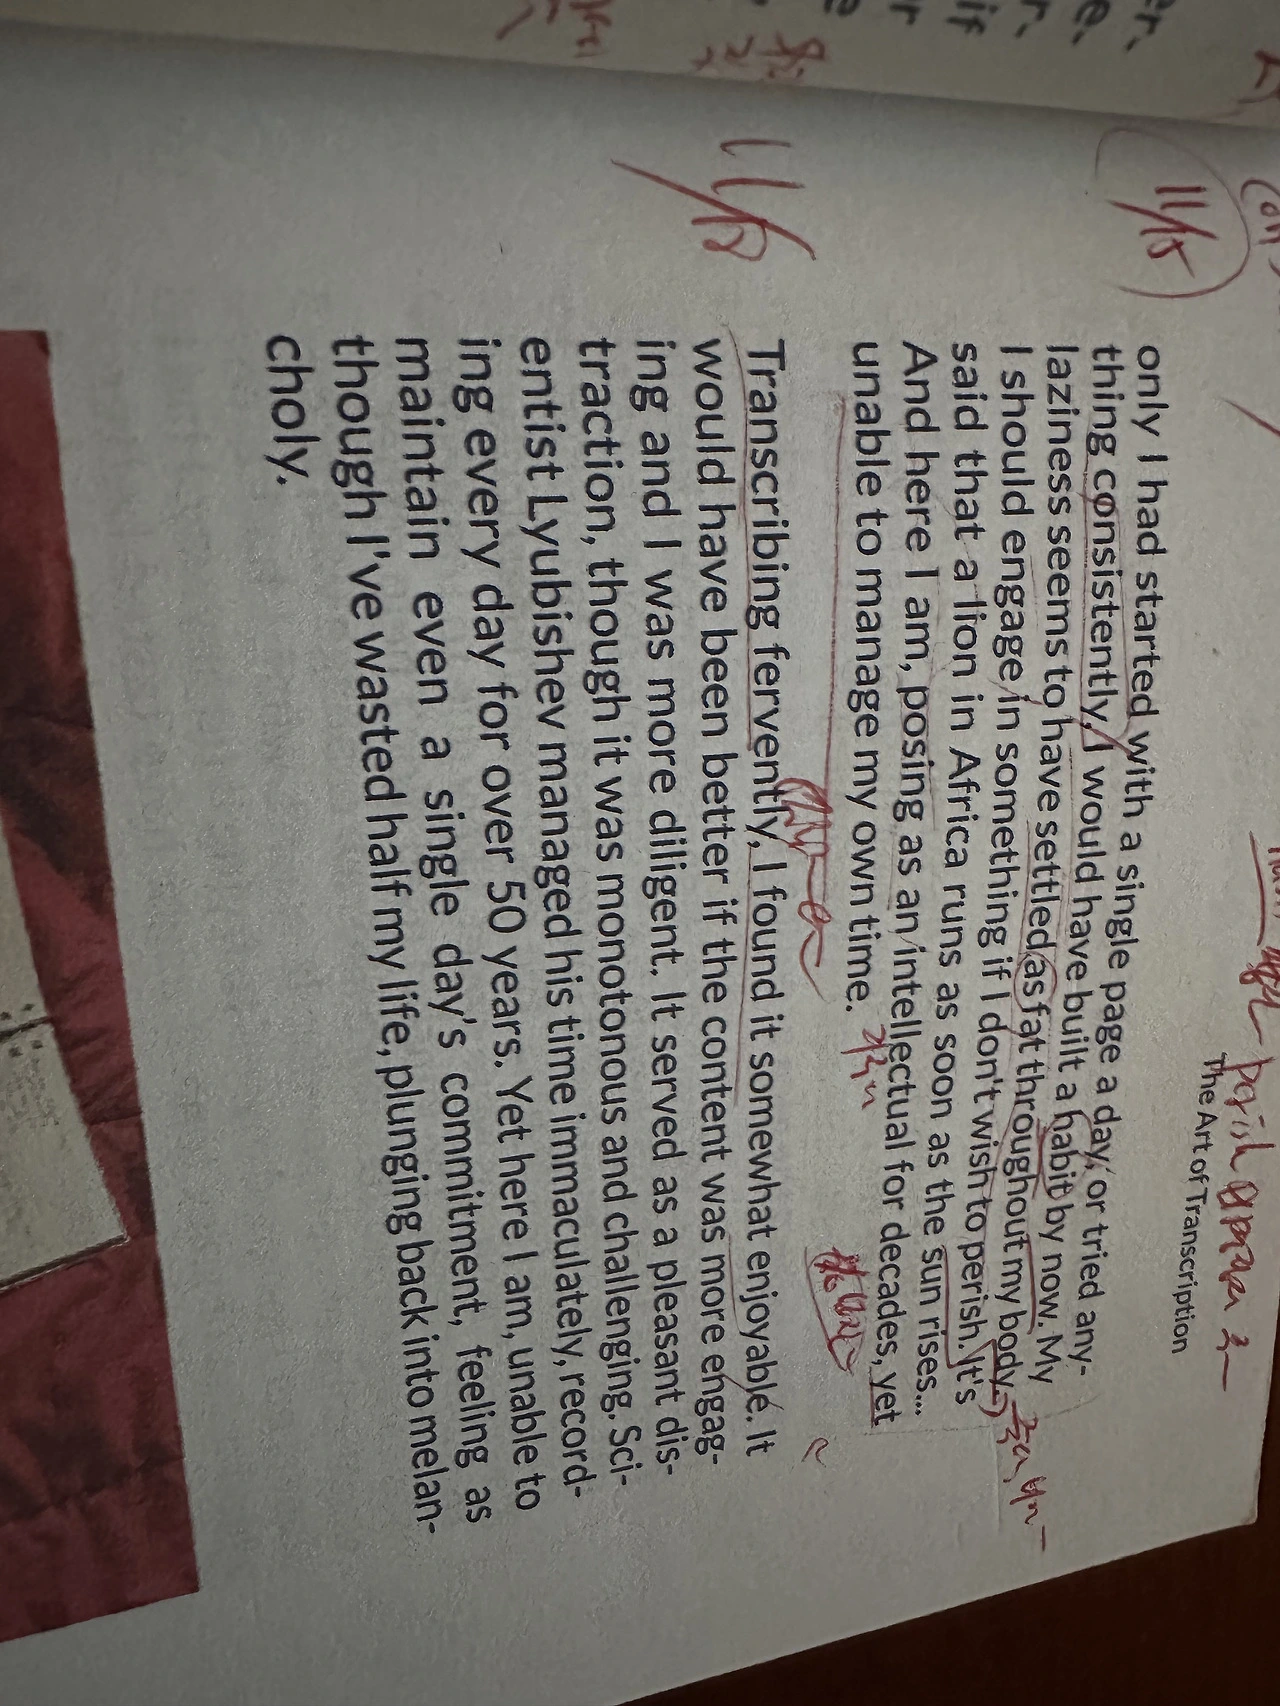 The Art of Transcription
only I had started with a single page a day, or tried any-
thing consistently, I would have built a habit by now. My
laziness seems to have settled as fat throughout my body.
I should engage in something if I don't wish to perish. It's
said that a lion in Africa runs as soon as the sun rises...
And here I am, posing as an intellectual for decades, yet
unable to manage my own time.
Transcribing fervently, I found it somewhat enjoyable. It
would have been better if the content was more engag-
ing and I was more diligent. It served as a pleasant dis-
traction, though it was monotonous and challenging. Sci-
entist Lyubishev managed his time immaculately, record-
ing every day for over 50 years. Yet here I am, unable to
maintain even a single day's commitment, feeling as
though I've wasted half my life, plunging back into melan-
choly.
perish
11/15